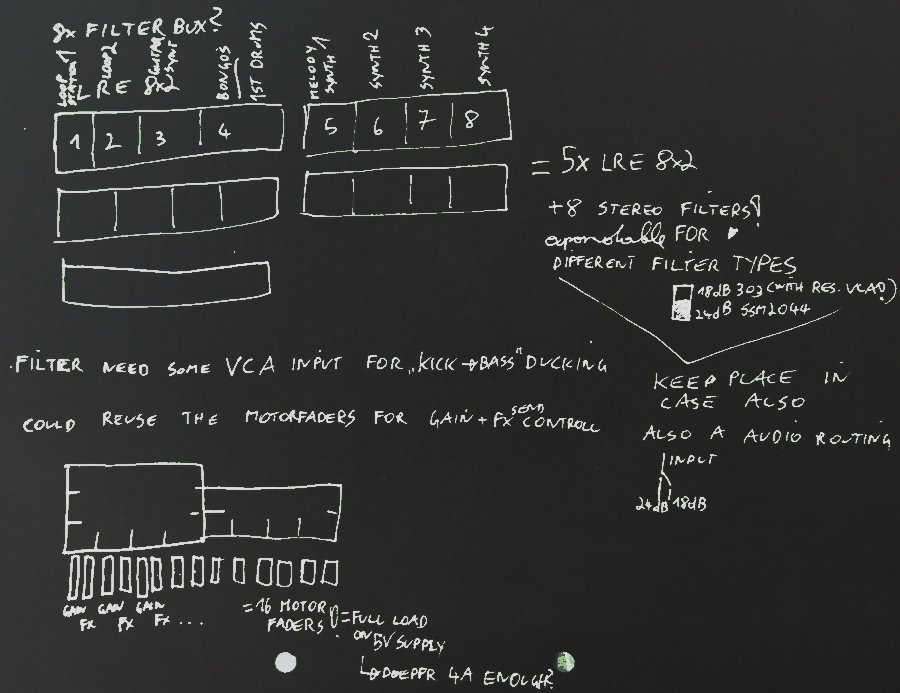 8x FILTER BUX?
LOOP STATION 1
LOOP 2
GUITAR SYNT
BONGOS
1ST DRUMS
MELODY SYNTH 1
SYNTH 2
SYNTH 3
SYNTH 4
LRE 8x2
1 2 3 4 5 6 7 8
= 5x LRE 8x2
+8 STEREO FILTERS!
FOR
DIFFERENT FILTER TYPES
18dB 303 (WITH RES. VCA?)
24dB SSM2044
FILTER NEED SOME VCA INPUT FOR „KICK→BASS" DUCKING
COULD REUSE THE MOTORFADERS FOR GAIN + FX SEND CONTROLL
KEEP PLACE IN
CASE ALSO
ALSO A AUDIO ROUTING
INPUT
24dB 18dB
GAIN GAIN GAIN
FX FX FX ...
=16 MOTOR
FADERS!
=FULL LOAD
ON 5V SUPPLY
DOEPFR 4A ENOUGH?